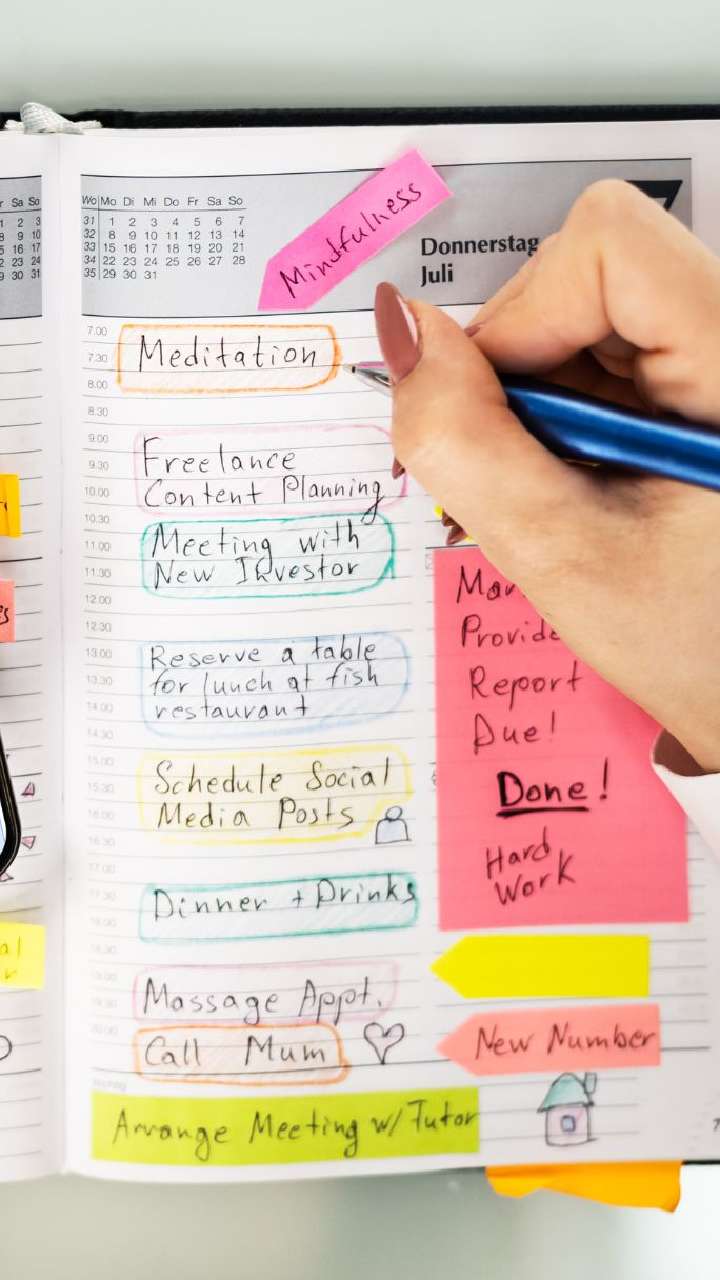 Sa So
2 3
9 10
16 17
23 24
30 31
Wo Mo Di Mi Do Fr Sa So
31 1 2 3 4 5 6 7
32 8 9 10 11 12 13 14
33 15 16 17 18 19 20 21
34 22 23 24 25 26 27 28
35 29 30 31
Mindfulness
Donnerstag
Juli
7.00
7.30 Meditation
8.00
8.30
9.00
9.30 Freelance
10.00 Content Planning
10.30
11.00 Meeting with
11.30 New Investor
12.00
12.30
13.00 Reserve a table
13.30 for lunch at fish
14.00 restaurant
14.30
15.00
15.30 Schedule Social
16.00 Media Posts
16.30
17.00
17.30 Dinner + Drinks
18.00
18.30
19.00
19.30 Massage Appt.
20.00 Call Mum
Arrange Meeting w/ Tutor
Report
Due!
Done!
Hard
Work
New Number